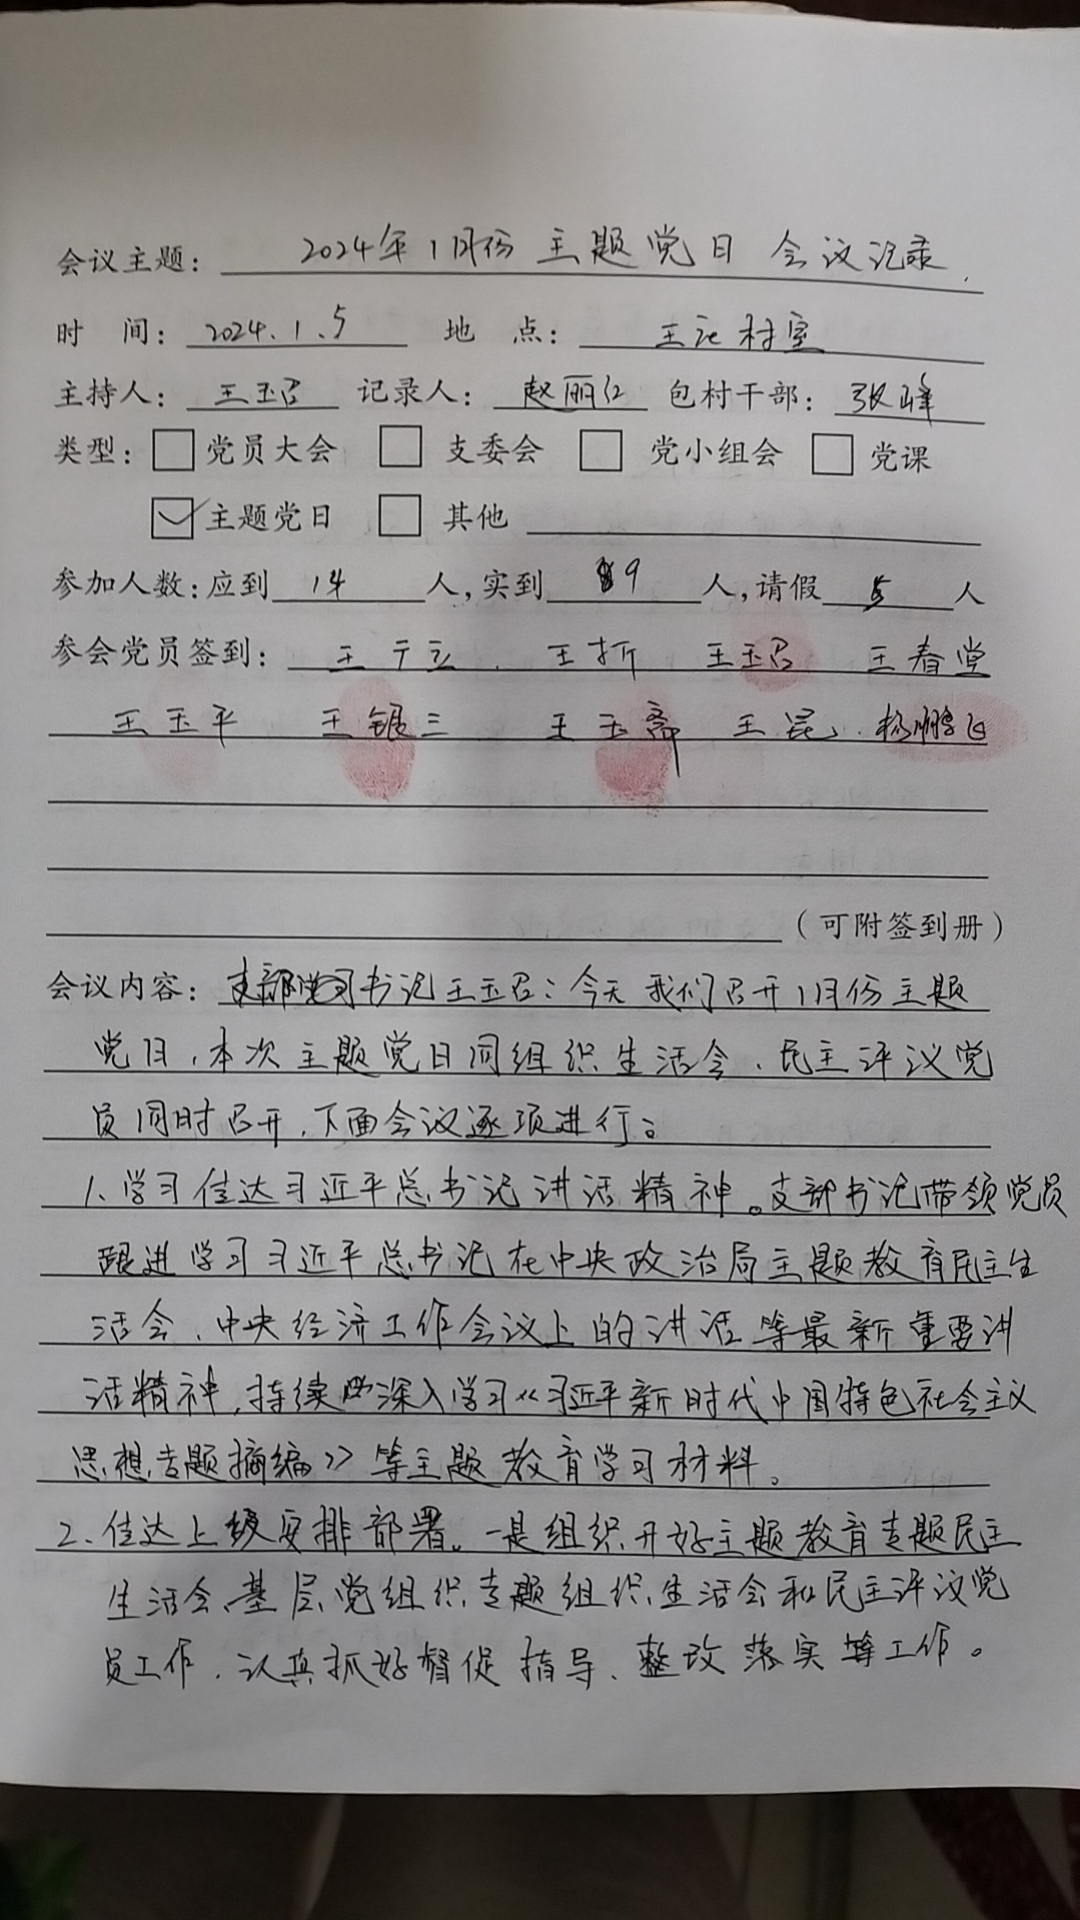 会议主题：2024年1月份 主题党日 会议记录
时 间：2024.1.5 地 点：王记村室
主持人：王玉召 记录人：赵丽红 包村干部：张峰
类型：□党员大会 □支委会 □党小组会 □党课
☑主题党日 □其他
参加人数：应到14人，实到9人，请假5人
参会党员签到：王于立 王折 王玉召 王春堂
王玉平 王银三 王玉斋 王昆 杨鹏飞
（可附签到册）
会议内容：支部书记王玉召：今天我们召开1月份主题
党日，本次主题党日同组织生活会、民主评议党
员同时召开，下面会议逐项进行：
1、学习传达习近平总书记讲话精神。支部书记带领党员
跟进学习习近平总书记在中央政治局主题教育民主生
活会、中央经济工作会议上的讲话等最新重要讲
话精神，持续深入学习《习近平新时代中国特色社会主义
思想专题摘编》等主题教育学习材料。
2、传达上级安排部署。一是组织开好主题教育专题民主
生活会、基层党组织专题组织生活会和民主评议党
员工作，认真抓好督促指导、整改落实等工作。